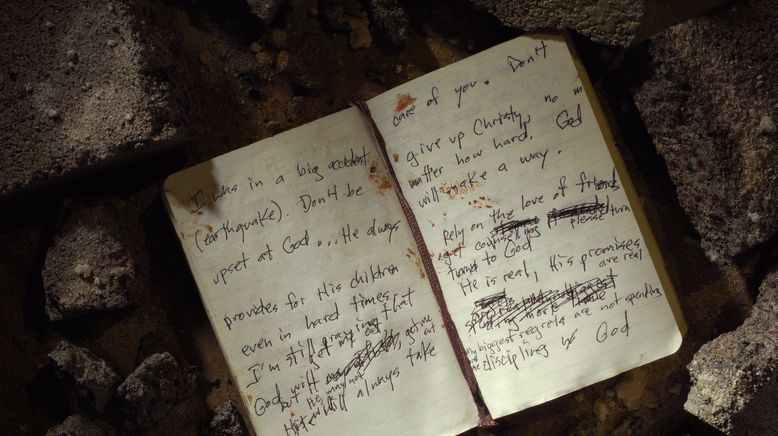 I was in a big accident
(earthquake). Don't be
upset at God ... He always
provides for His children
even in hard times.
I'm still praying that
God will get me out
but He may not get me out
He will always take
care of you. Don't
give up Christy, no
matter how hard. God
will make a way.
Rely on the love of friends
get counseling if
please turn
turn to God
He is real, His promises
are real
my biggest regrets are not spending
disciplines w God